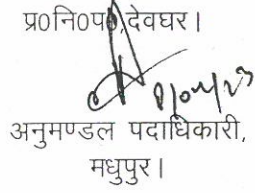 प्र0नि0प0,देवघर।
अनुमण्डल पदाधिकारी,
मधुपुर।